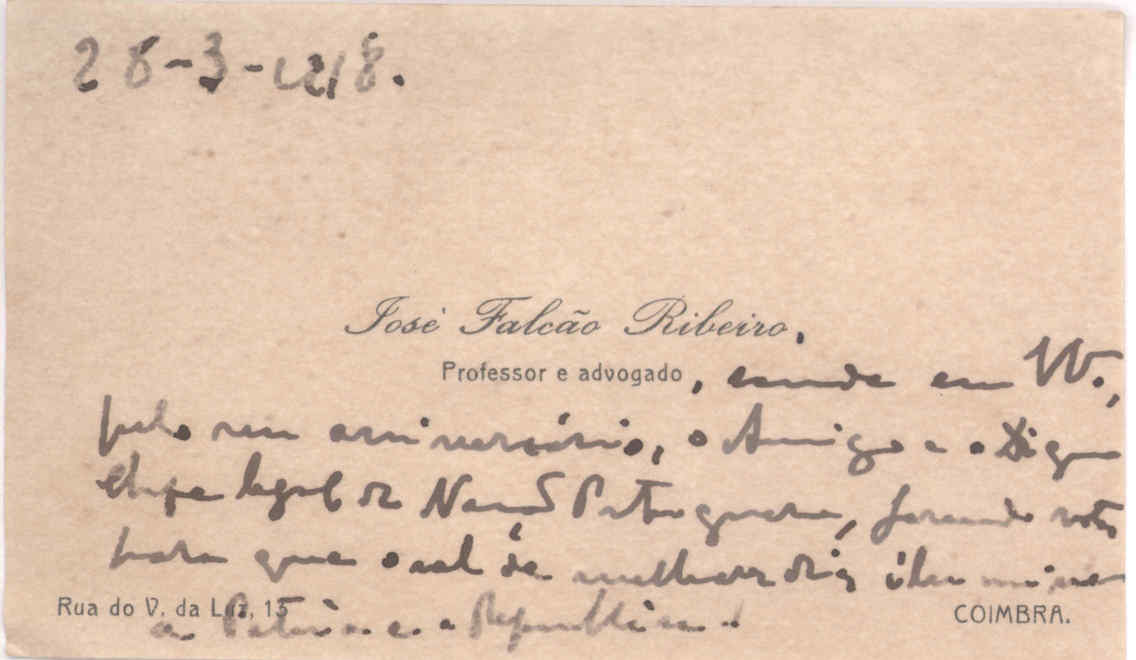 28-3-1918.
José Falcão Ribeiro,
Professor e advogado, sauda em V.,
pelo seu aniversário, o Amigo e o Digno
chefe legal da Nação Portuguesa, fazendo votos
para que o sol de melhores dias ilumine
Rua do V. da Luz, 13 COIMBRA.
a Patria e a Republica!